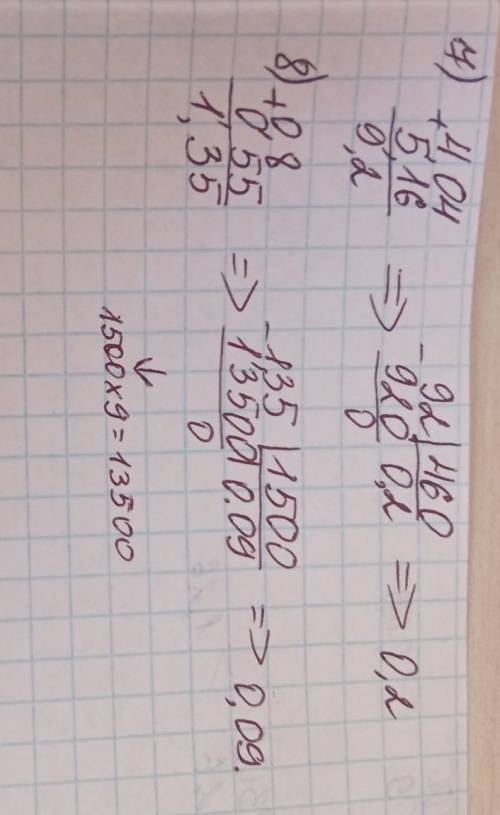 4)
+4,04
5,16
9,2
=> -92 | 460
920 0,2
0
=> 0,2
8)
+0,8
0,55
1,35
=> -135 | 1500
13500 0.09
0
=> 0,09.
1500x9=13500